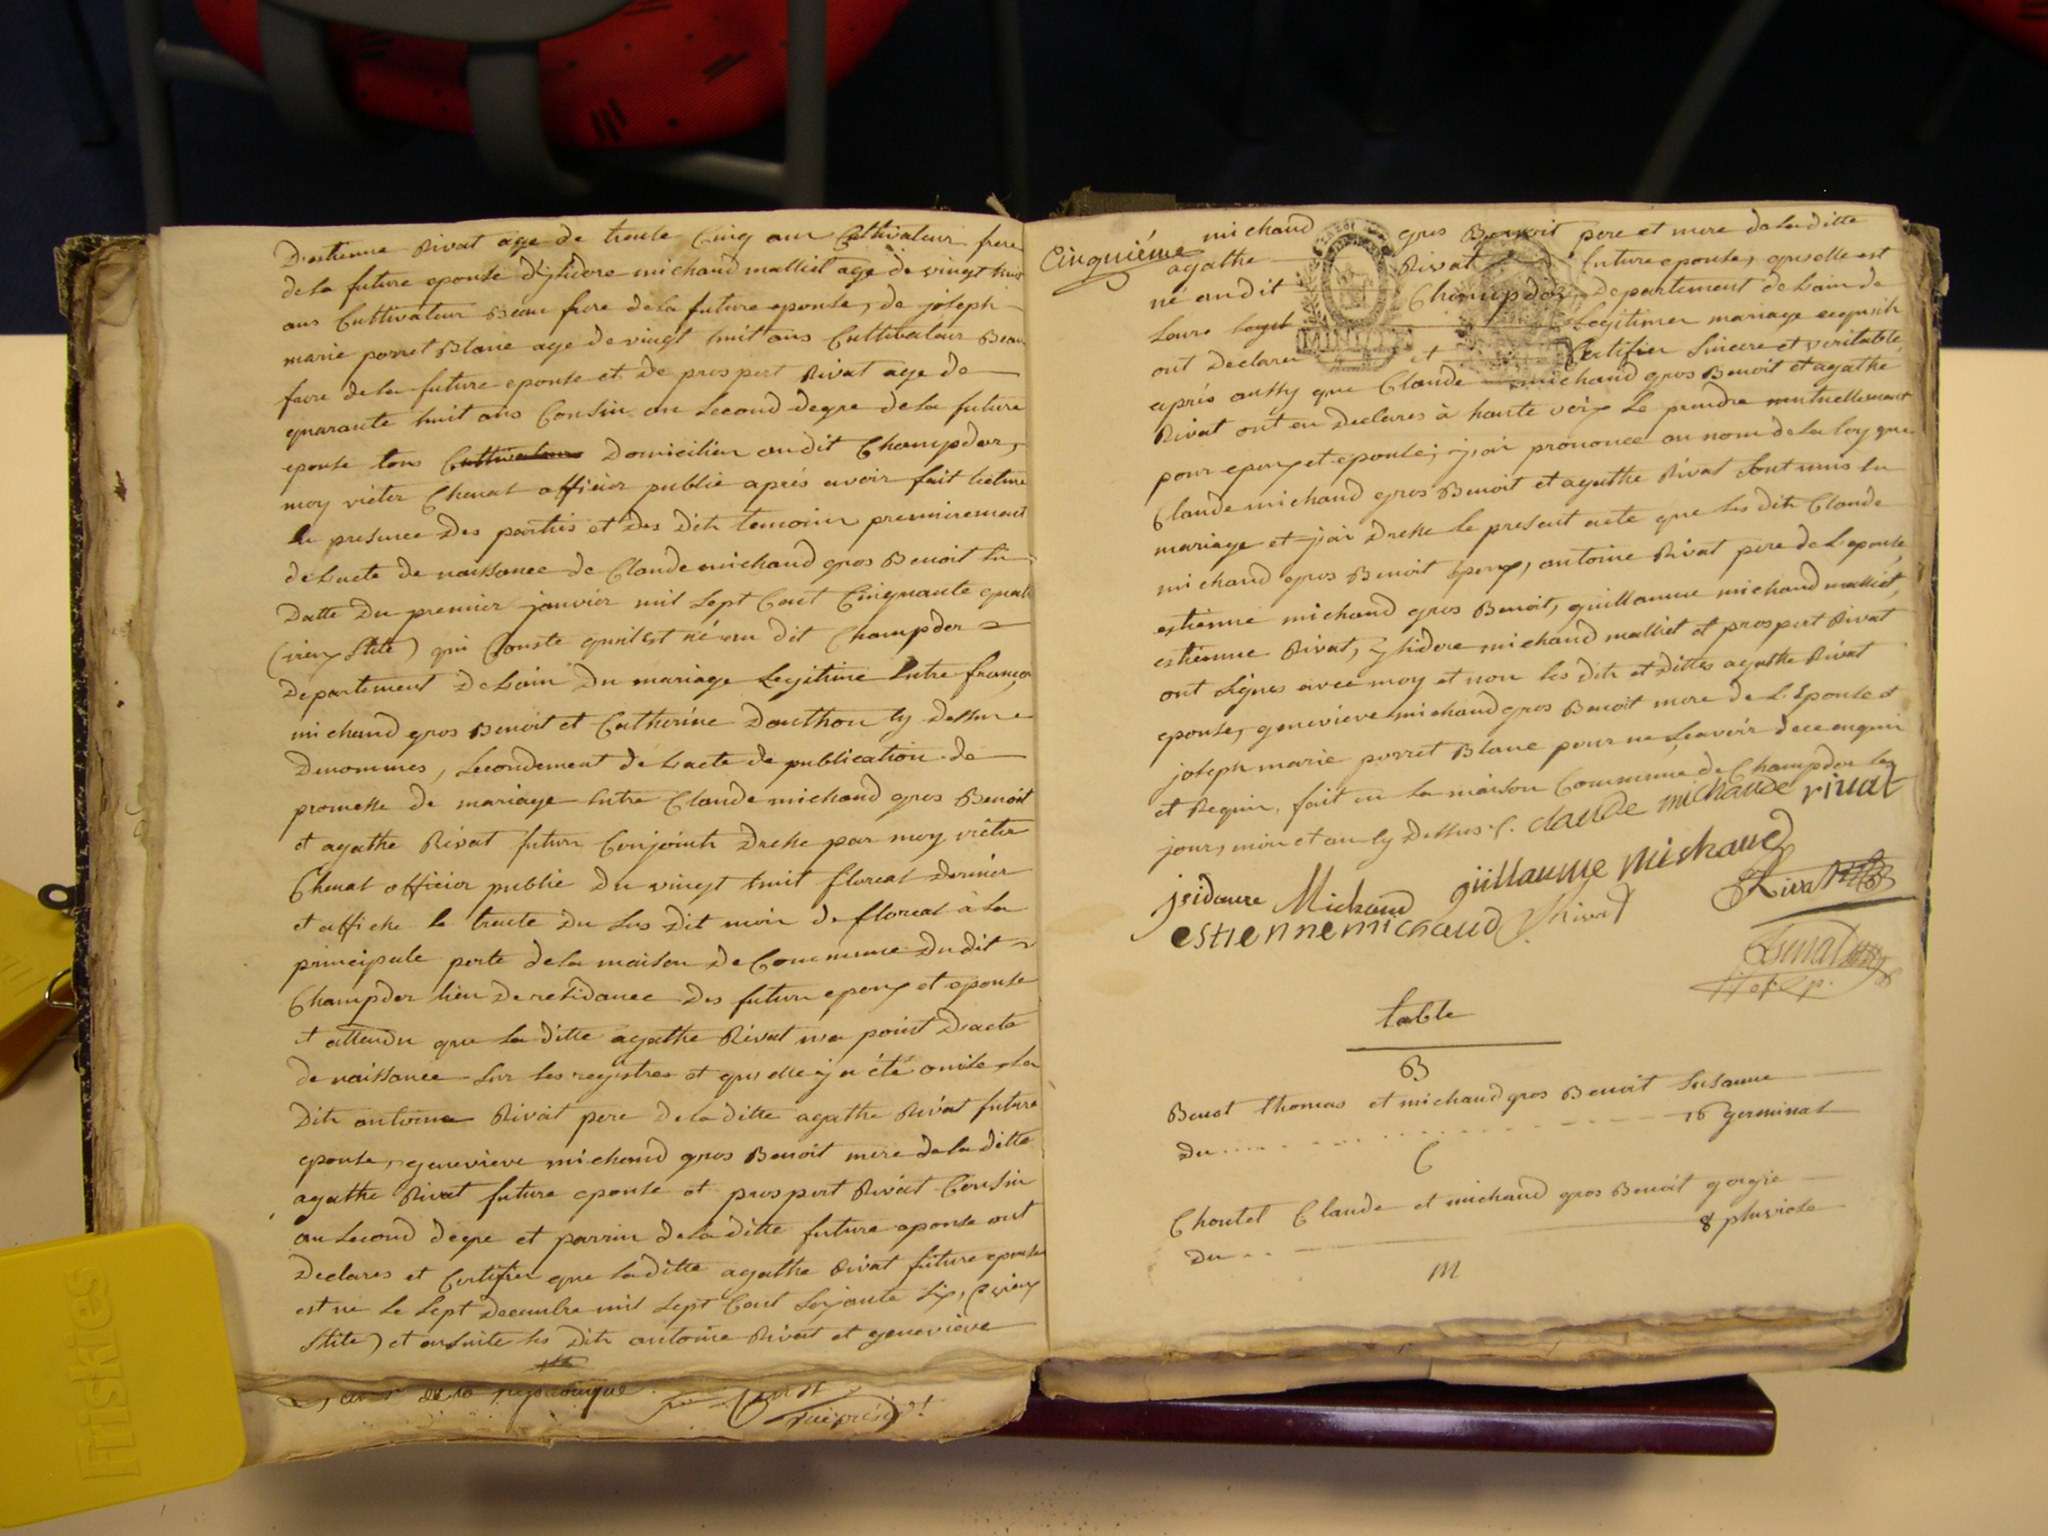 D'estienne Rivat age de trente Cinq ans Cultivateur frere
de la future epouse d'ysidore michaud malliet age de vingt huit
ans Cultivateur Beau frere de la future epouse, de joseph
marie porret Blanc age de vingt huit ans Cultivateur Beau
frere de la future epouse et De prospert Rivat age de
quarante huit ans Cousin au Second degre de la future
epouse tous Cultivateurs Domicilies au dit Champdor,
moy victor Chenat officier public aprés avoir fait lecture
En presence Des parties et des Dits temoins premierement
de L'acte de naissance de Claude michaud gros Benoit En
Datte Du premier janvier mil Sept Cent Cinquante quatre
(vieux Stile) qui Conste quil Est né au dit Champdor
Departement De Lain Du mariage Legitime Entre françois
michaud gros Benoit et Catherine Douthou Cy Dessus
Denommes, Secondement de L'acte de publication de
promesse de mariage Entre Claude michaud gros Benoit
et agathe Rivat futurs Conjoints Dresse par moy victor
Chenat officier public Du vingt huit floreal Dernier
et affiche le trente Du Sus Dit mois de floreal à la
principale porte de la maison De Commune Du dit
Champdor lieu De residance Des futurs epoux et epouse
et attendu que La ditte agathe Rivat n'a point D'acte
de naissance Sur les registres et qu'elle y a été omise Les
Dits antoine Rivat pere De la ditte agathe Rivat future
epouse, genevieve michaud gros Benoit mere de la ditte
agathe Rivat future epouse et prospert Rivat Cousin
au Second degre et parrin de la ditte future epouse ont
Declares et Certifier que La ditte agathe Rivat future epouse
est né le Sept Decembre mil Sept Cent Soixante Six, (vieux
Stile) et ensuite les Dits antoine Rivat et genevieve
de la republique
Cinquiéme
michaud gros Benoit pere et mere de la ditte
agathe Rivat future epouse, qu'elle est
né au dit Champdor Departement de Lain de
Leurs Legitimes mariage
ont Declares et Certifier Sincere et veritable
aprés aussy que Claude michaud gros Benoit et agathe
Rivat ont eu Declares à haute voix Se prendre mutuellement
pour epoux et epouse, j'ai prononce au nom de la loy que
Claude michaud gros Benoit et agathe Rivat Sont unis En
mariage et j'ai Dresse le present acte que les dits Claude
michaud gros Benoit epoux, antoine Rivat pere de L'epouse
estienne michaud gros Benoit, guillaume michaud malliet,
estienne Rivat, ysidore michaud malliet et prospert Rivat
ont Signes avec moy et non les dits et dittes agathe Rivat
epouse, genevieve michaud gros Benoit mere de L'Epouse et
joseph marie porret Blanc pour ne Sçavoir de ce enquis
et Requis, fait en la maison Commune de Champdor les
jours, mois et an Cy Dessus. claude michaude rivat
jsidaure Michaud guillaume Michaud Rivat
estiennemichaud Rivat
table
B
Benot thomas et michaud gros Benoit Susanne
Du 16 germinal
C
Choutet Claude et michaud gros Benoit gorgie
Du 8 pluviose
M
Friskies